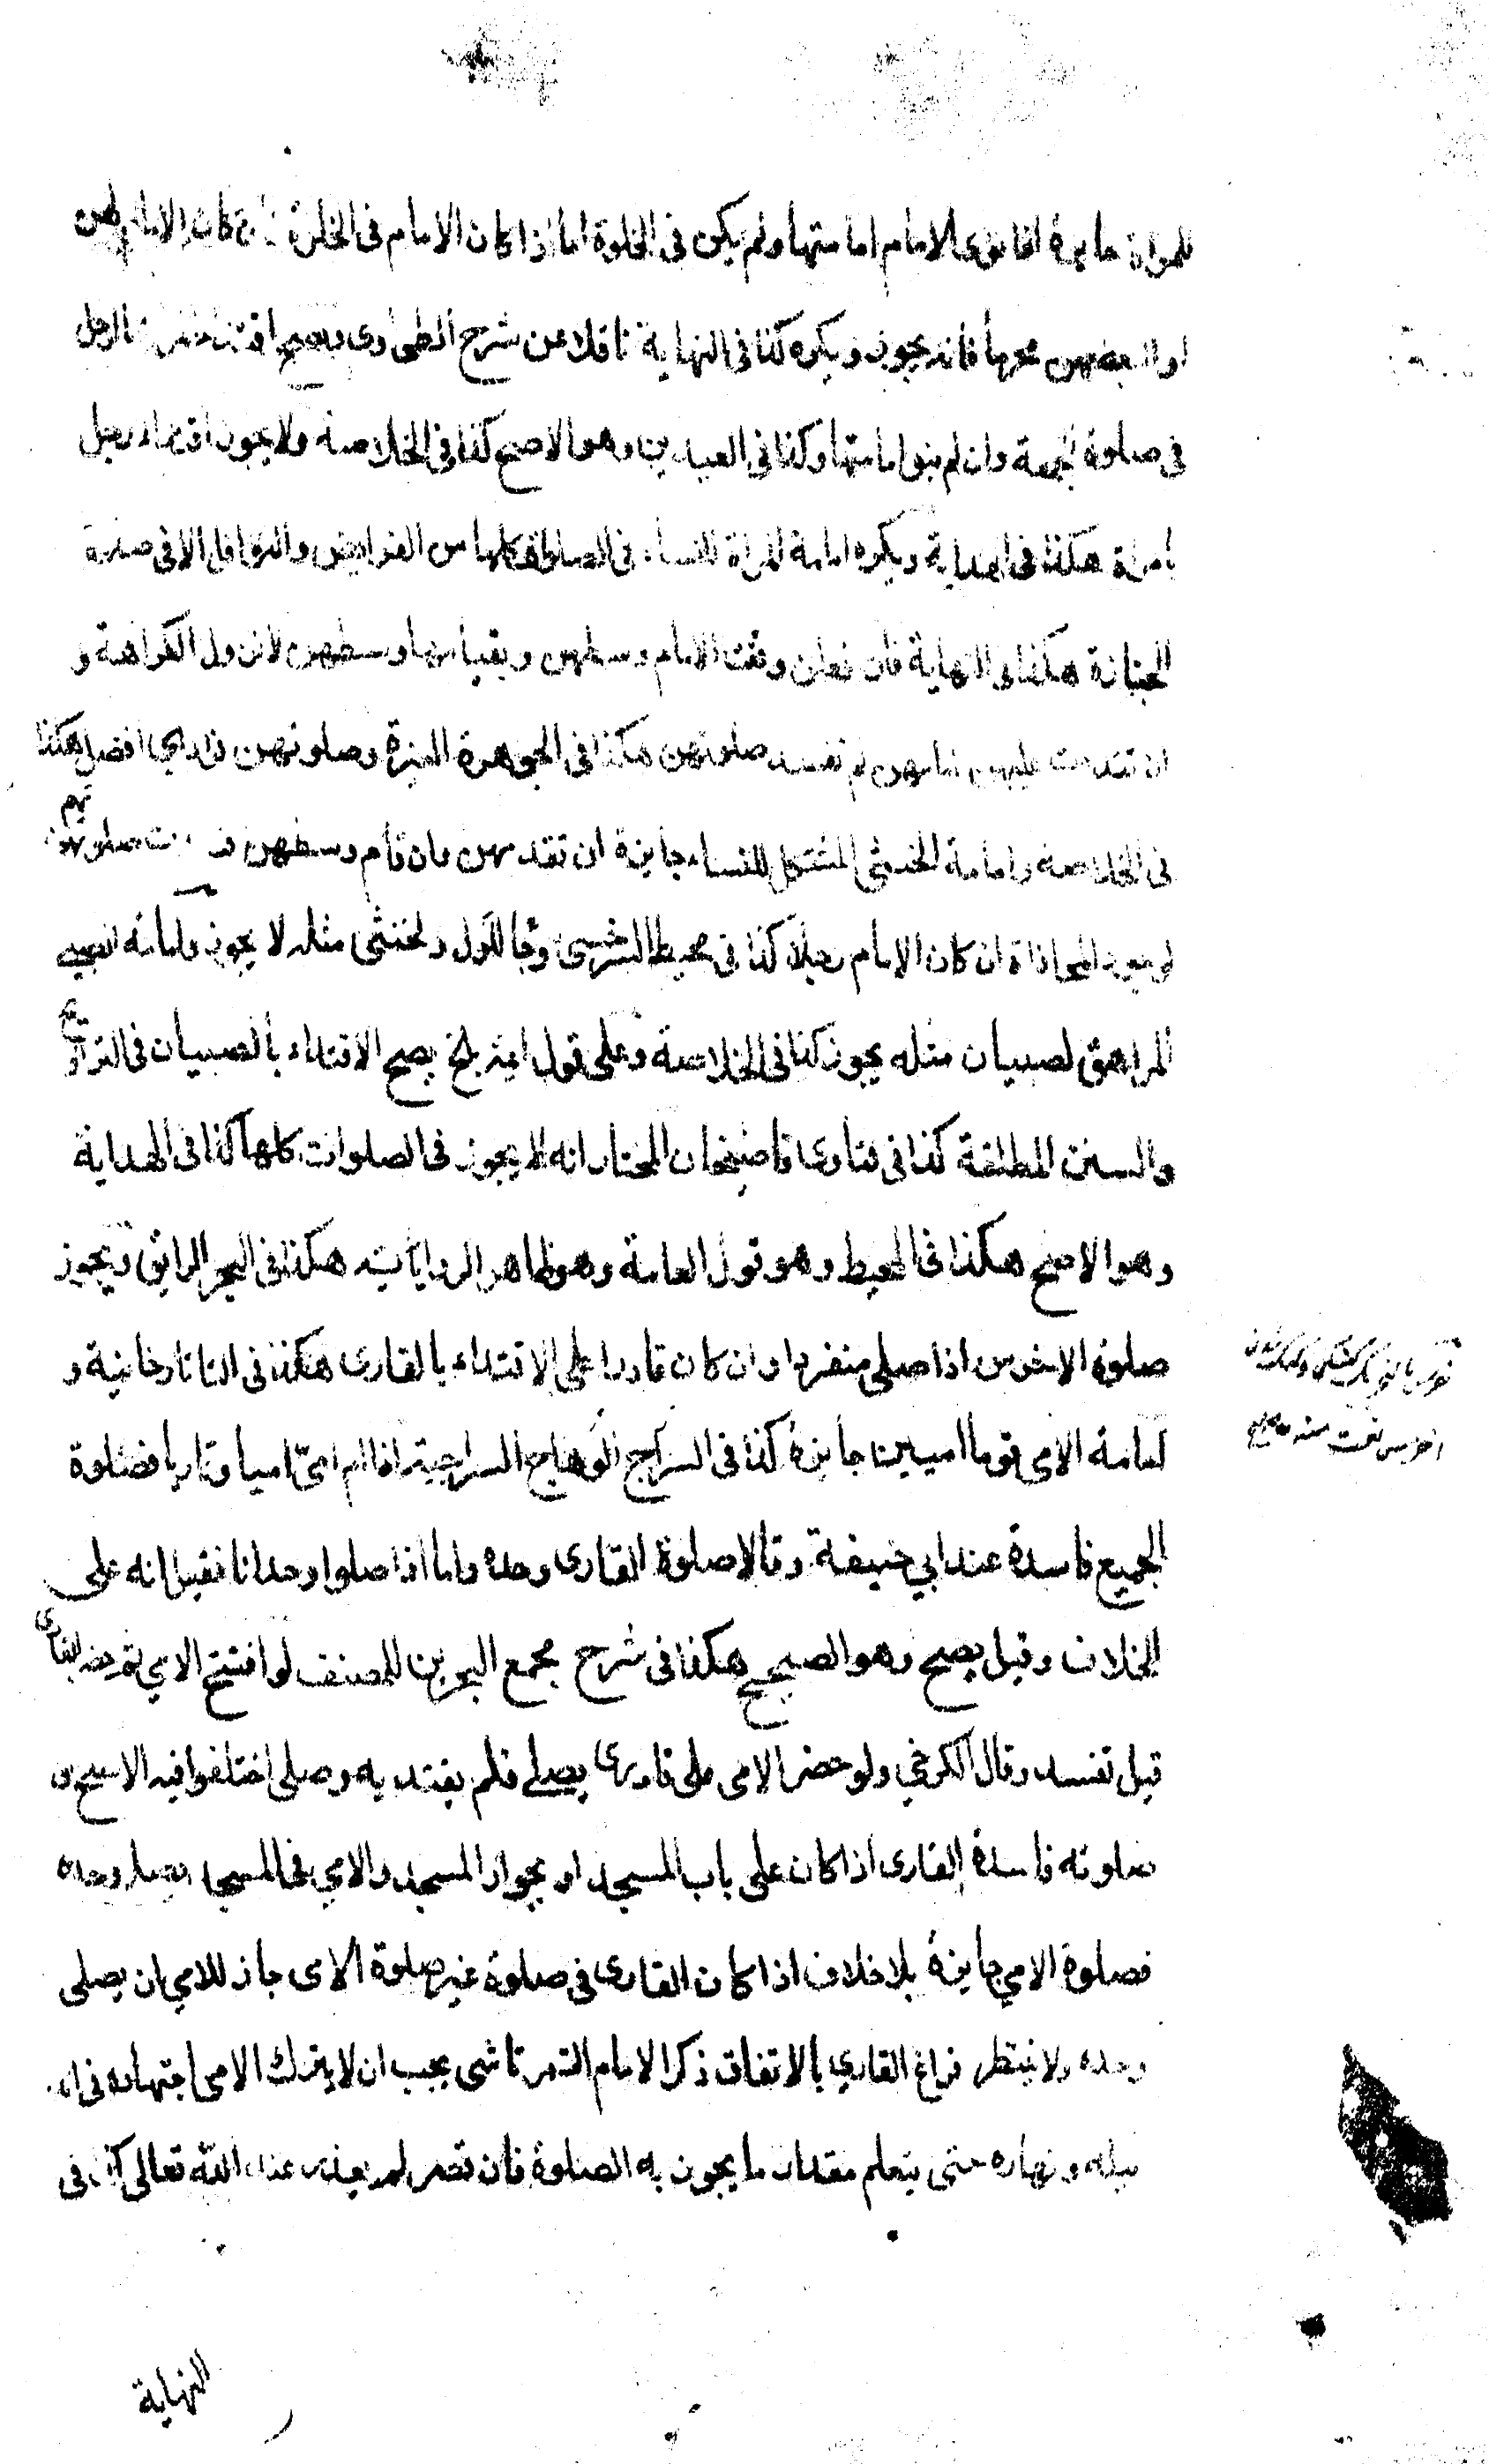 للمراة جايزة اذا نوى الامام امامتها ولم يكن فى الخلوة اما اذا كان الامام فى الخلوة كان الامام لهن
او لبعضهن محرما فانه يجوز ويكره كذا فى النهاية ناقلا عن شرح الطحاوى ويصح اقتداء بالرجل
فى صلوة الجمعة وان لم ينو امامتها وكذا فى العيدين وهو الاصح كذا فى الخلاصة ولا يجوز اقتداء رجل
بامراة هكذا فى الهداية ويكره امامة المراة للنساء فى الصلوة كلها من الفرايض والنوافل الا فى صلوة
الجنازة هكذا فى النهاية فان فعلن وقفت الامام وسطهن وبقيامها وسطهن لا تزول الكراهة و
ان تقدمت عليهن امامهن لم تفسد صلوتهن هكذا فى الجوهرة النيرة وصلوتهن فرادى افضل هكذا
فى الخلاصة وامامة الخنثى المشكل للنساء جايزة ان تقدمهن وان قام وسطهن صلوتهم
لوجود المحاذاة ان كان الامام رجلا كذا فى محيط السرخسى وللرجل ولخنثى مثله لا يجوز وامامة الصبى
المراهق لصبيان مثله يجوز كذا فى الخلاصة وعلى قول ايمة بلخ يصح الاقتداء بالصبيان فى التراويح
والسنن المطلقة كذا فى فتاوى قاضيخان المختار انه لا يجوز فى الصلوات كلها كذا فى الهداية
وهو الاصح هكذا فى المحيط وهو قول العامة وهو ظاهر الروايات هكذا فى البحر الرايق ويجوز
صلوة الاخرس اذا صلى منفردا وان كان قادرا على الاقتداء بالقارى هكذا فى التاتارخانية و
امامة الامى قوما اميين جايزة كذا فى السراج الوهاج السراجية اذا ام امى اميا وقاريا فصلوة
الجميع فاسدة عند ابي حنيفة وقالا صلوة القارى وحده واما اذا صلوا وحدانا فقيل انه على
الخلاف وقيل يصح وهو الصحيح هكذا فى شرح مجمع البحرين للمصنف لو افتتح الامي ثم حضر القارى
قيل تفسد وقال الكرخي ولو حضر الامى على قارى يصلے فلم يقتد به وصلى اختلفوا فيه الاصح ان
صلوته فاسدة القارى اذا كان على باب المسجد او بجوار المسجد والامي فى المسجد يصلى وحده
فصلوة الامي جايزة بلا خلاف اذا كان القارى فى صلوة غير صلوة الامى جاز للامي ان يصلى
وحده ولا ينتظر فراغ القاري بالاتفاق ذكر الامام التمرتاشى يجب ان لا يترك الامى اجتهاده فى اناء
ليله ونهاره حتى يتعلم مقدار ما يجوز به الصلوة فان قصر لم يعذر عند الله تعالى كذا فى
النهاية